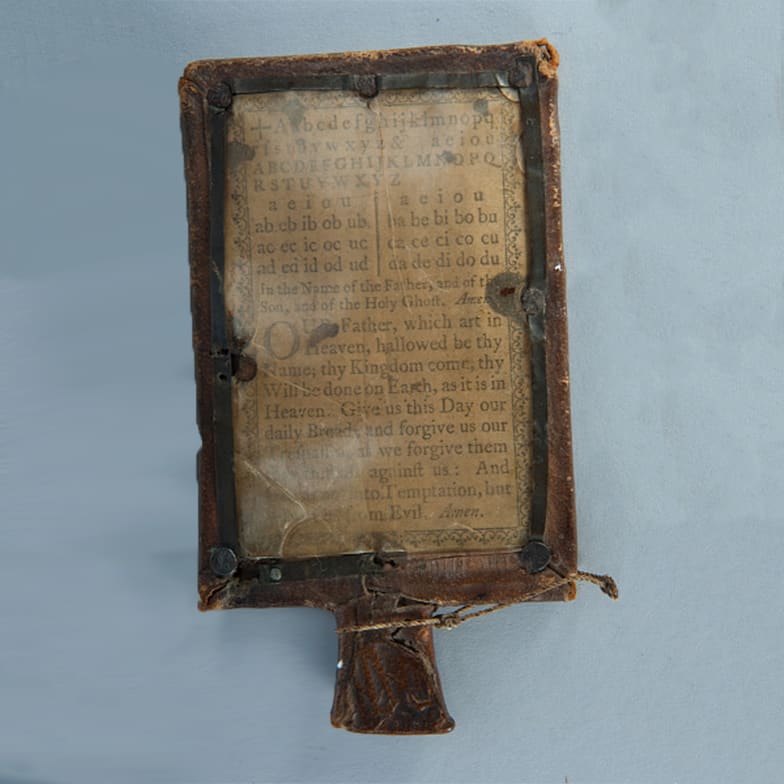 +Aabcdefghijklmnopq
rſstuvwxyz& aeiou
ABCDEFGHIJKLMNOPQ
RSTUVWXYZ
a e i o u a e i o u
ab eb ib ob ub ba be bi bo bu
ac ec ic oc uc ca ce ci co cu
ad ed id od ud da de di do du
In the Name of the Father, and of the
Son, and of the Holy Ghoſt. Amen
OUR Father, which art in
Heaven, hallowed be thy
Name; thy Kingdom come, thy
Will be done on Earth, as it is in
Heaven. Give us this Day our
daily Bread, and forgive us our
as we forgive them
againſt us: And
into Temptation, but
from Evil. Amen.